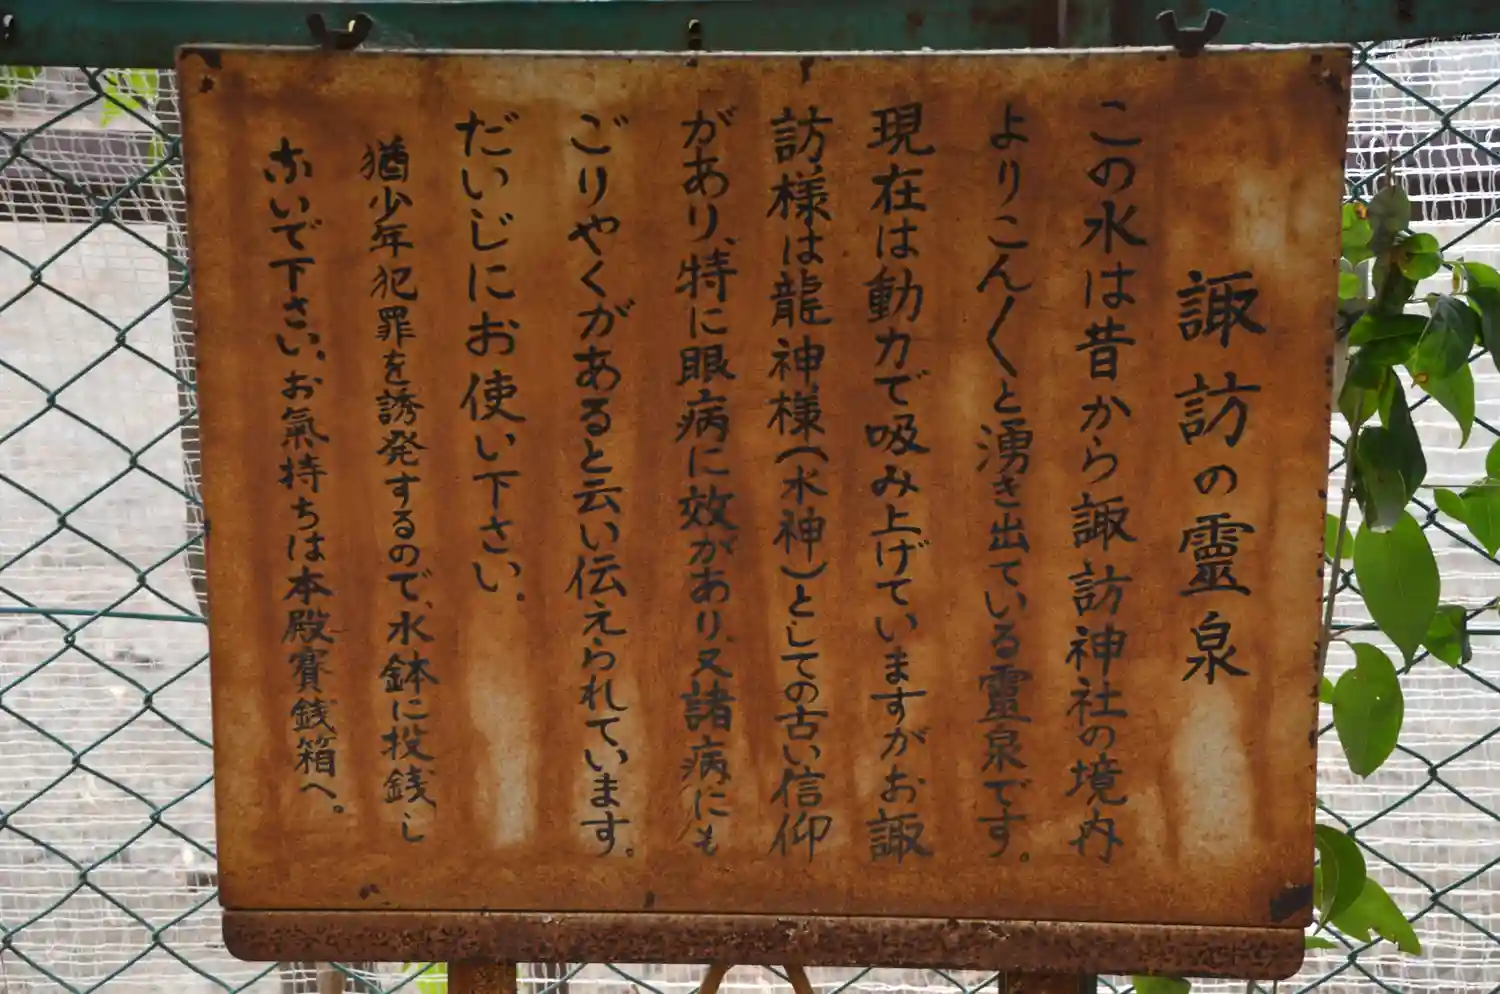 諏訪の靈泉
この水は昔から諏訪神社の境内
よりこん〱と湧き出ている靈泉です。
現在は動力で吸み上げていますがお諏
訪様は龍神様(水神)としての古い信仰
があり、特に眼病に効があり、又諸病にも
ごりやくがあると云い伝えられています。
だいじにお使い下さい。
猶少年犯罪を誘発するので、水鉢に投銭し
ないで下さい、お氣持ちは本殿賽銭箱へ。